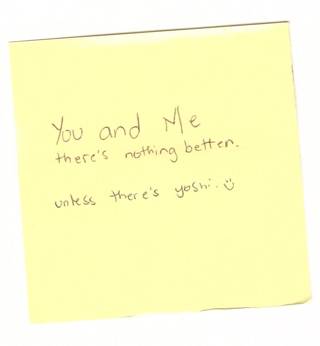 You and Me
there's nothing better.
unless there's yoshi. ☺